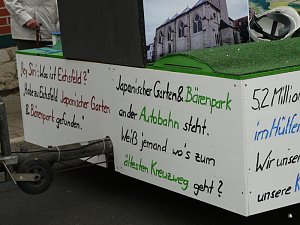 Hey Siri: Was ist Eichsfeld?"
Habe zu Eichsfeld Japanischer Garten
& Bärenpark gefunden.
Japanischer Garten & Bärenpark
an der Autobahn steht.
Weiß jemand wo's zum
ältesten Kreuzweg geht?
52 Million
im Hülfen
Wir unsere
unsere